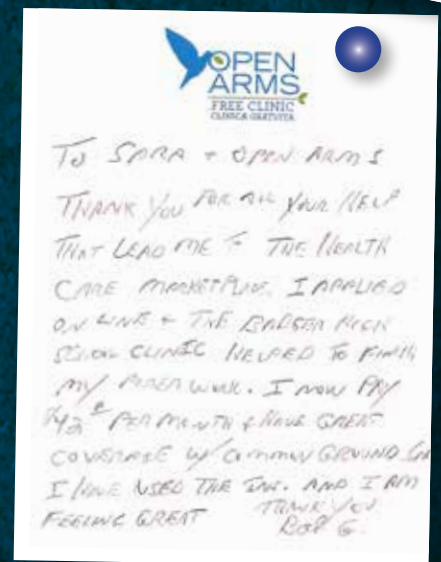 OPEN
ARMS
FREE CLINIC
CLINICA GRATUITA
TO SARA + OPEN ARMS
THANK YOU FOR ALL YOUR HELP
THAT LEAD ME TO THE HEALTH
CARE MARKETPLACE. I APPLIED
ON LINE + THE BADGER HIGH
SCHOOL CLINIC HELPED TO FINISH
MY PAPER WORK. I NOW PAY
PER MONTH & HAVE GREAT
COVERAGE W/ COMMON GROUND
I HAVE USED THE INS. AND I AM
FEELING GREAT THANK YOU
BOB G.